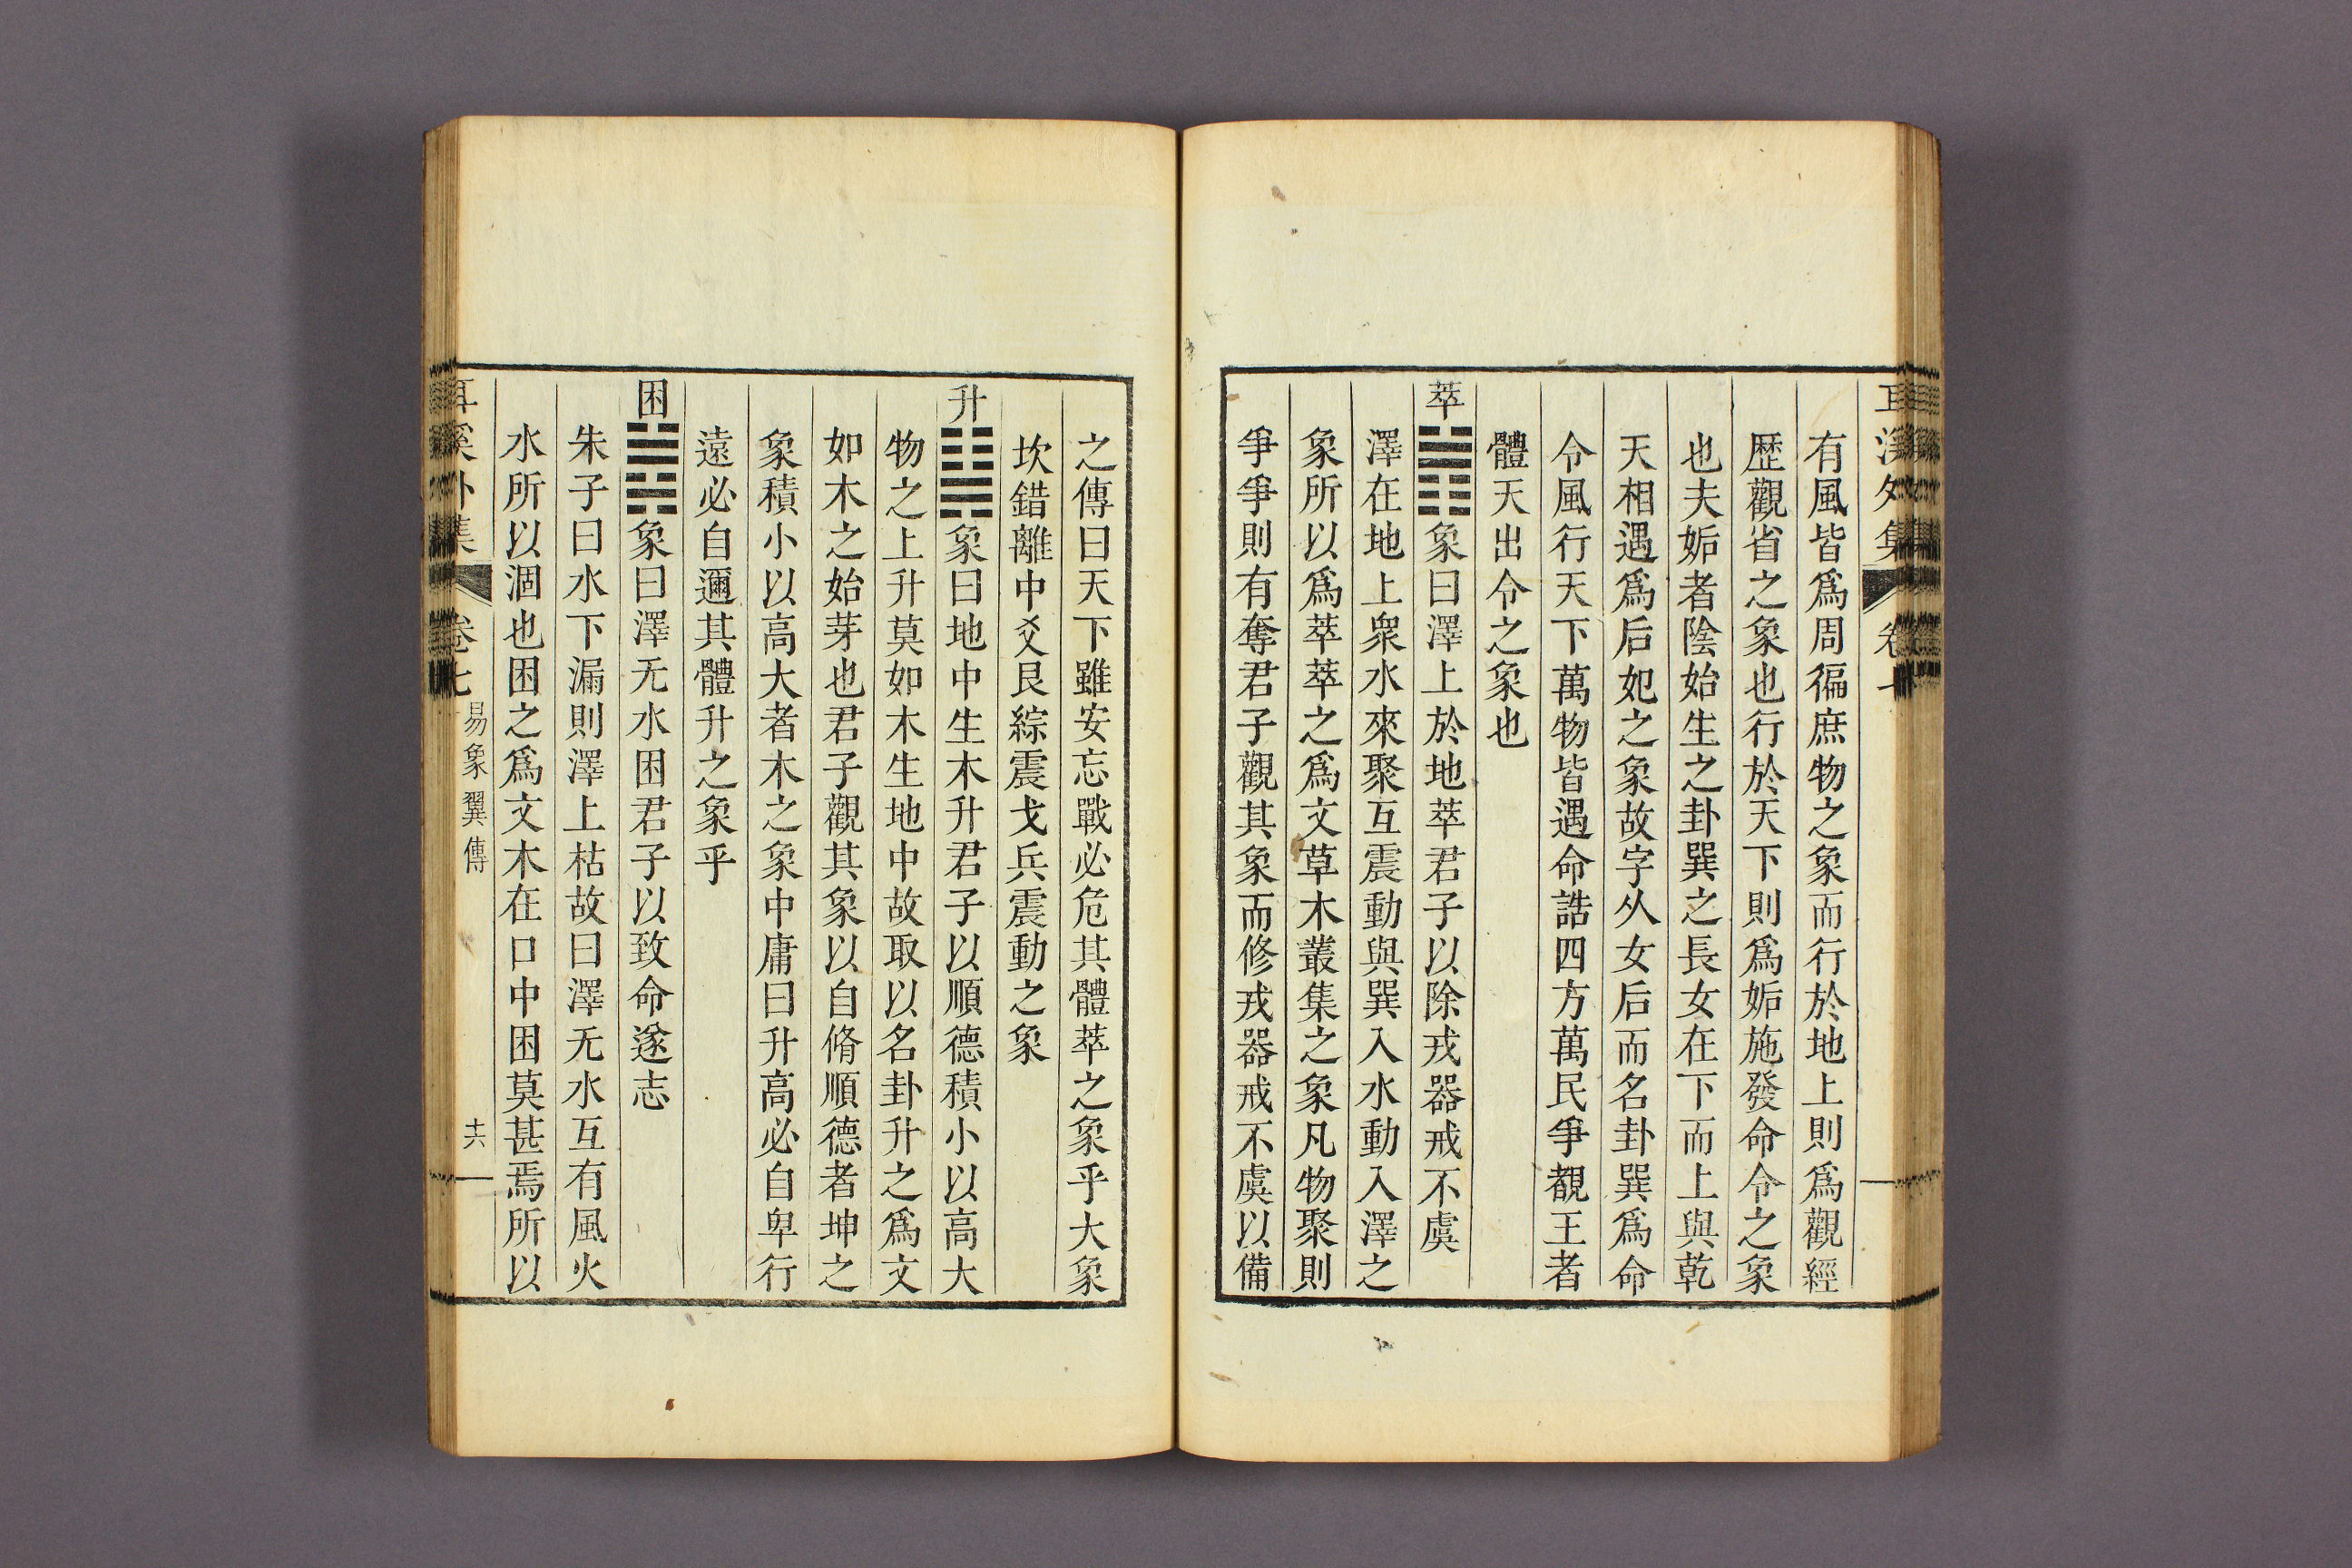 有風皆爲周徧庶物之象而行於地上則爲觀經
歷觀省之象也行於天下則爲姤施發命令之象
也夫姤者陰始生之卦巽之長女在下而上與乾
天相遇爲后妃之象故字从女后而名卦巽爲命
令風行天下萬物皆遇命誥四方萬民爭覩王者
體天出令之象也
萃䷬象曰澤上於地萃君子以除戎器戒不虞
澤在地上衆水來聚互震動與巽入水動入澤之
象所以爲萃萃之爲文草木叢集之象凡物聚則
爭爭則有奪君子觀其象而修戎器戒不虞以備
之傳曰天下雖安忘戰必危其體萃之象乎大象
坎錯離中爻艮綜震戈兵震動之象
升䷭象曰地中生木升君子以順德積小以高大
物之上升莫如木生地中故取以名卦升之爲文
如木之始芽也君子觀其象以自脩順德者坤之
象積小以高大者木之象中庸曰升高必自卑行
遠必自邇其體升之象乎
困䷮象曰澤无水困君子以致命遂志
朱子曰水下漏則澤上枯故曰澤无水互有風火
水所以涸也困之爲文木在口中困莫甚焉所以
耳溪外集 卷七 易象翼傳 十六